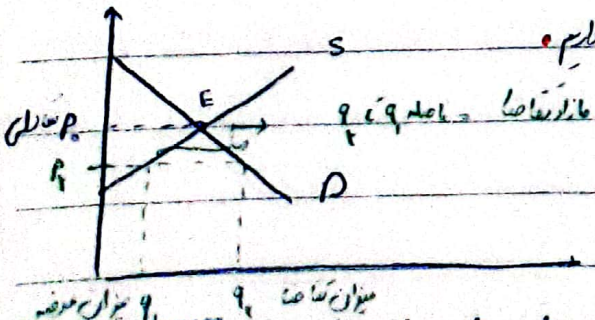 داریم
S
E
مازاد تقاضا = فاصله q₁ تا q₂
P₀ تعادلی
P₂
D
میزان عرضه q₁ q₂ میزان تقاضا